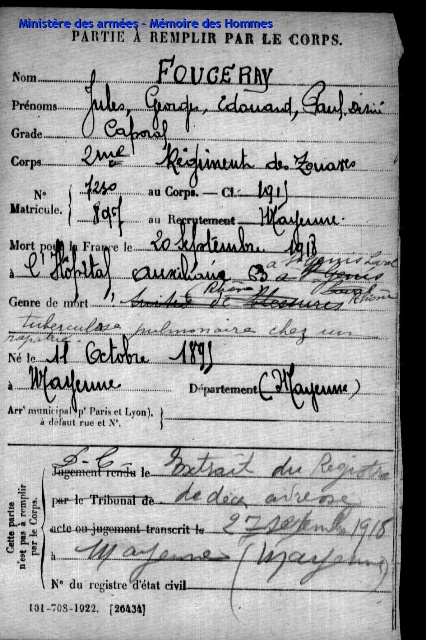 Ministère des armées - Mémoire des Hommes
PARTIE À REMPLIR PAR LE CORPS.
Nom FOUGERAY
Prénoms Jules, Georges, Edouard, Paul, Désiré
Grade Caporal
Corps 2me Régiment de Zouaves
N° Matricule. { 7230 au Corps. — Cl. 1915
897 au Recrutement Mayenne.
Mort pour la France le 20 Septembre 1918
à l'Hôpital auxiliaire 3 à St Genis Laval
Rhône
Genre de mort Suites de Blessures
tuberculose pulmonaire chez un
rapatrié
Né le 11 Octobre 1895
à Mayenne Département (Mayenne)
Arrt municipal (pr Paris et Lyon),
à défaut rue et N°.
Cette partie
n'est pas à remplir
par le Corps.
Jugement rendu le Extrait du Registre
par le Tribunal de de décès adressé
acte ou jugement transcrit le 27 septembre 1918
à Mayenne (Mayenne)
N° du registre d'état civil
101-708-1922. [26434]